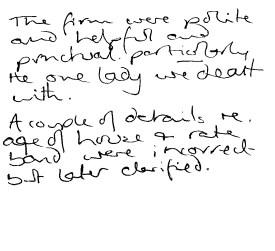 The firm were polite
and helpful and
punctual. particularly
the one lady we dealt
with.
A couple of details re.
age of house & rate
band were incorrect
but later clarified.